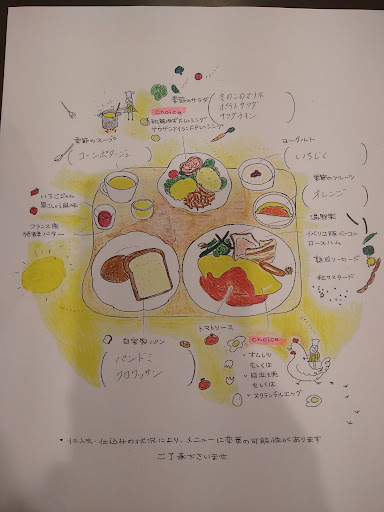 季節のサラダ
きのこのマリネ
ポテトサラダ
サラダチキン
choice
和風ゆずドレッシング
サウザンアイランドドレッシング
季節のスープ
コーンポタージュ
ヨーグルト
いちじく
季節のフルーツ
オレンジ
いちごジャム
黒こしょう風味
フランス産
発酵バター
温野菜
イベリコ豚ベーコン
ロースハム
熟成ソーセージ
粒マスタード
自家製パン
パンドミ
クロワッサン
トマトソース
choice
・オムレツ
もしくは
・目玉焼
もしくは
・スクランブルエッグ
・仕入れ・仕込みの状況により、メニューに変更の可能性があります
ご了承下さいませ